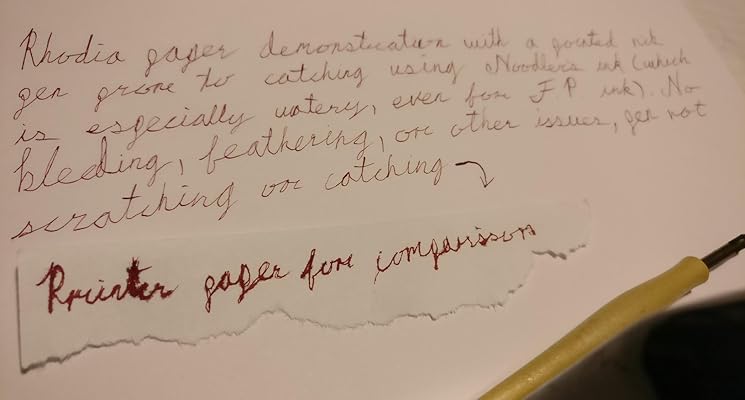 Rhodia paper demonstration with a pointed nib
pen prone to catching using Noodlers ink (which
is especially watery, even for F.P ink). No
bleeding, feathering, or other issues, pen not
scratching or catching
Printer paper for comparison